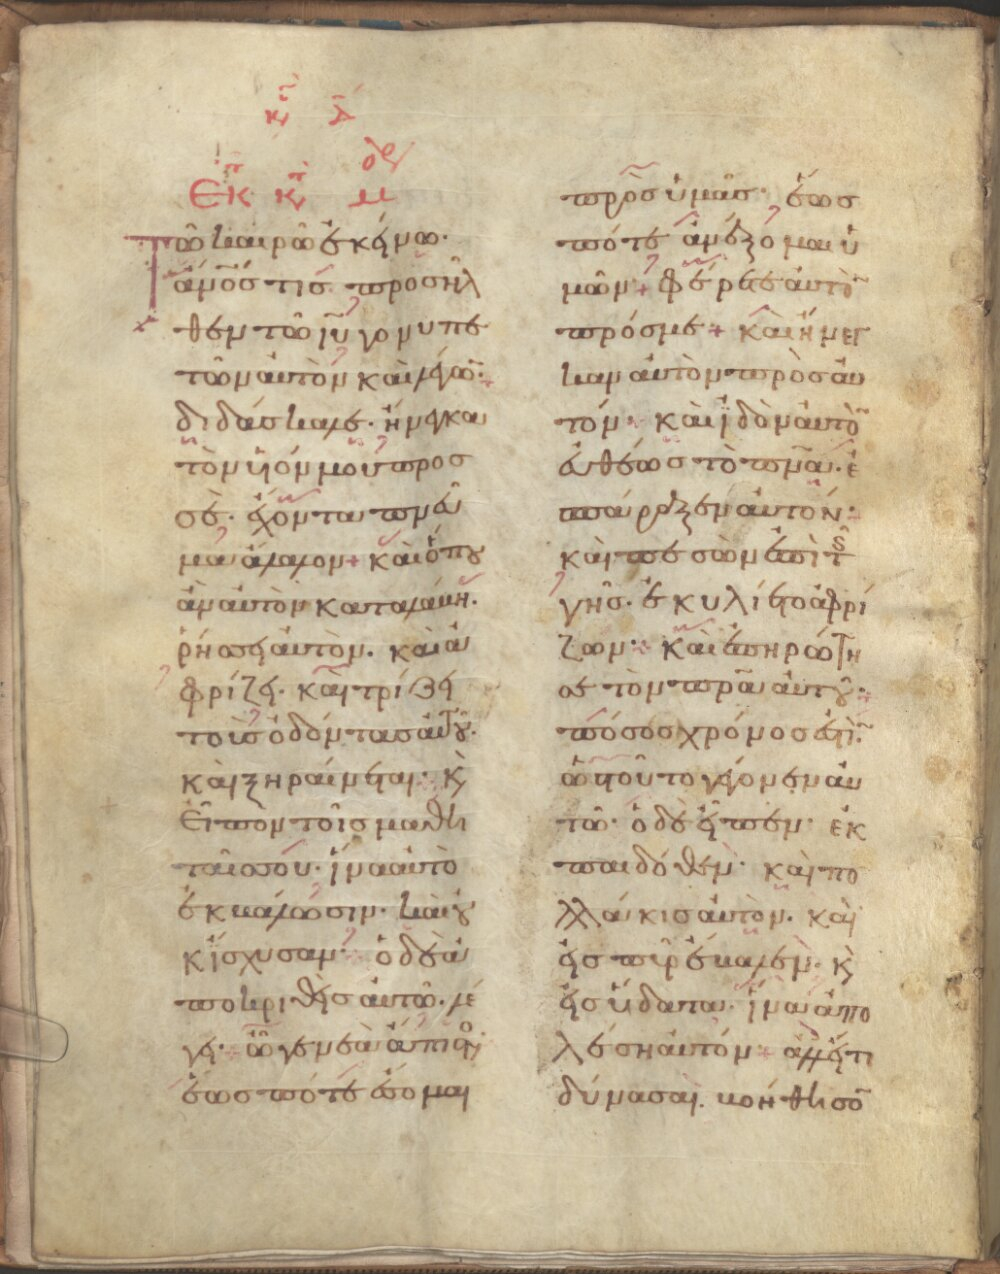 κυ Δ
Ἐκ κτ Μρ
Τῶ καιρῶ ἐκείνω·
ἄνος τις προσῆλ
θεν τῶ ιυ γονυπε
τῶν αὐτὸν καὶ λέγων·
διδάσκαλε· ἤνεγκα
τὸν υἱόν μου προσ
σέ· ἔχοντα πνεῦ
μα ἄλαλον + καὶ ὅπου
ἂν αὐτὸν καταλάβη·
ῥήσσει αὐτόν· καὶ ἀ
φρίζει· καὶ τρίζει
τοὺς ὀδόντας αὐτοῦ·
καὶ ξηραίνεται· κὲ
εἶπον τοῖς μαθη
ταῖς σου· ἵνα αὐτὸ
ἐκβάλωσιν· καὶ οὐ
κ ἴσχυσαν· ὁ δὲ ἀ
ποκριθεὶς αὐτῶ· λέ
γει· ὦ γενεὰ ἄπιστος
ἕως πότε ἔσομαι
πρὸς ὑμᾶς· ἕως
πότε ἀνέξομαι ὑ
μῶν + φέρετε αὐτὸν
πρός με + καὶ ἤνεγ
καν αὐτὸν πρὸς αὐ
τόν· καὶ ἰδὸν αὐτὸν
εὐθέως τὸ πνα· ἐ
σπάραξεν αὐτόν·
καὶ πεσὼν ἐπὶ τῆς
γῆς· ἐκυλίετο ἀφρί
ζων· καὶ ἐπηρώτη
σε τὸν πρα αὐτοῦ·
πόσος χρόνος ἐστὶν
ὡς τοῦτο γέγονεν αὐ
τῶ· ὁ δὲ εἶπεν· ἐκ
παιδόθεν· καὶ πο
λλάκις αὐτὸν· καὶ
εἰς πῦρ ἔβαλεν· κὲ
εἰς ὕδατα· ἵνα ἀπο
λέση αὐτόν + ἀλλ' εἴ τι
δύνασαι· βοήθησον